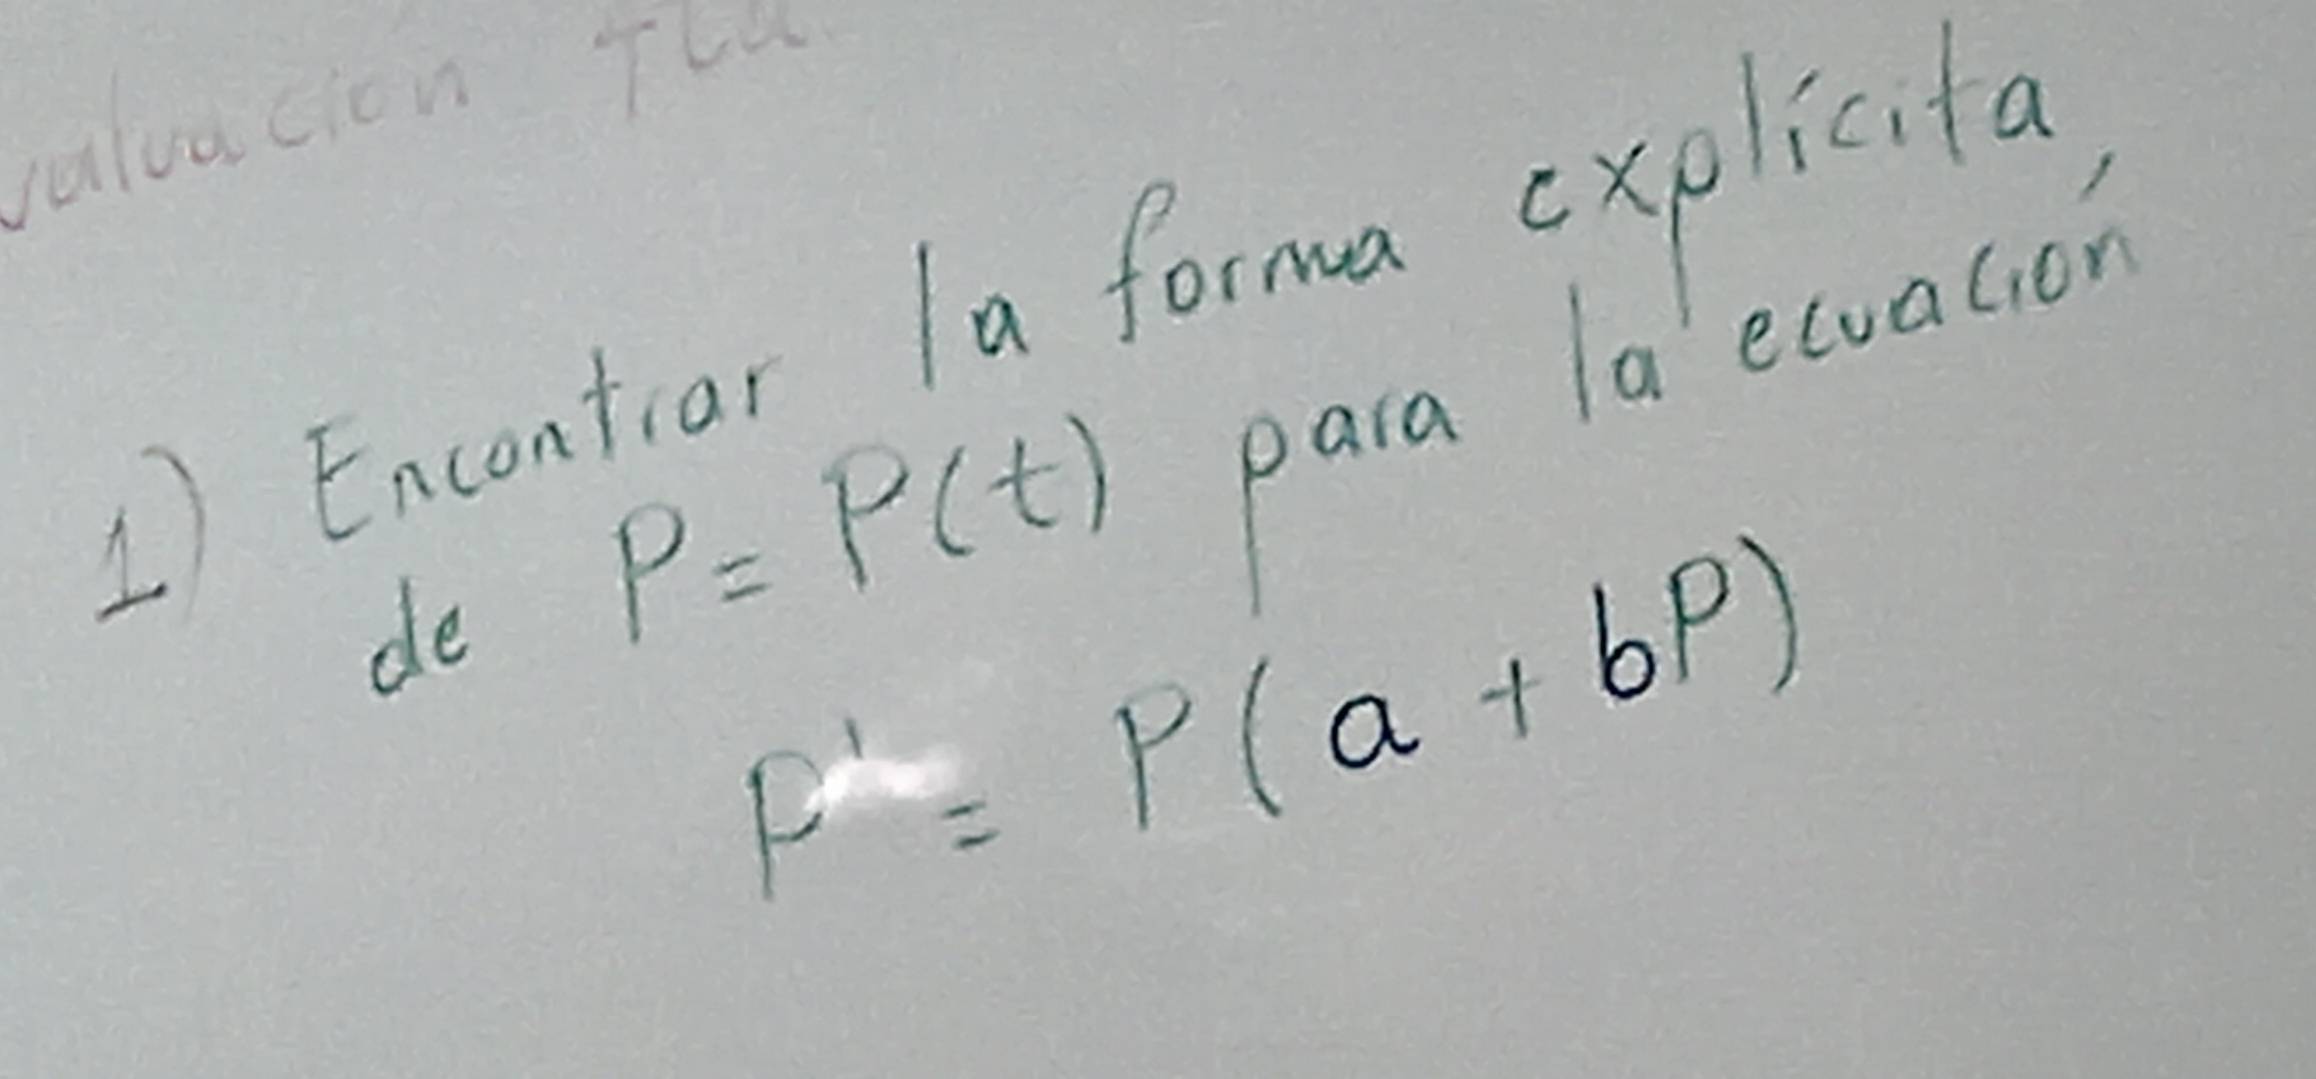 valuación
1) Encontrar la forma explícita,
de P = P(t) para la ecuación
P' = P(a + bP)